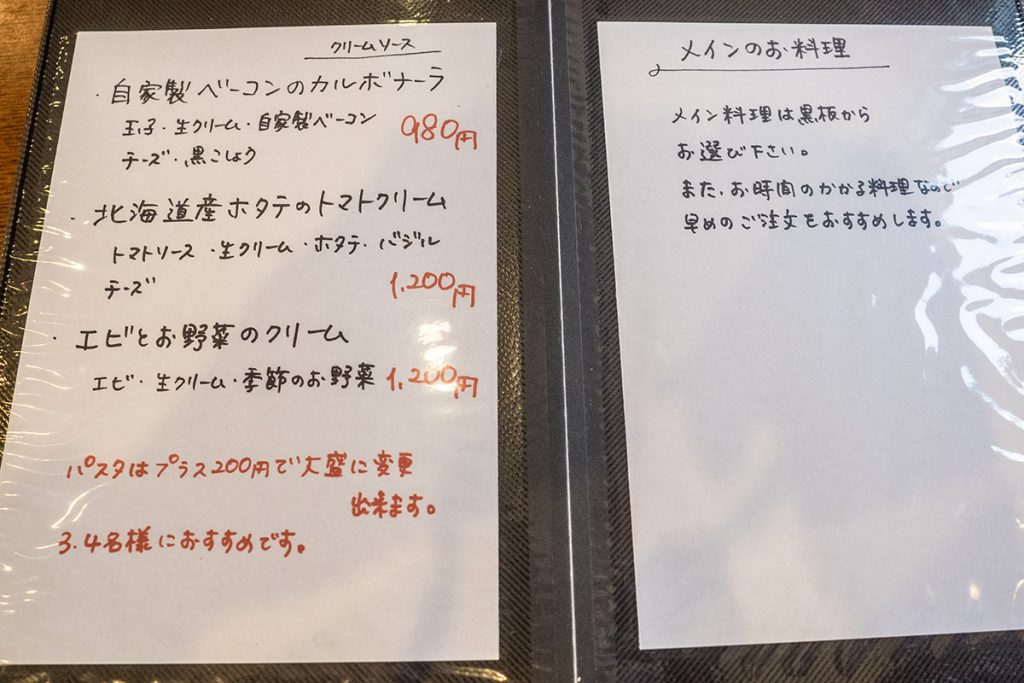 クリームソース
・自家製ベーコンのカルボナーラ
玉子・生クリーム・自家製ベーコン
チーズ・黒こしょう
980円
・北海道産ホタテのトマトクリーム
トマトソース・生クリーム・ホタテ・バジル
チーズ
1,200円
・エビとお野菜のクリーム
エビ・生クリーム・季節のお野菜 1,200円
パスタはプラス200円で大盛に変更
出来ます。
3.4名様におすすめです。
メインのお料理
メイン料理は黒板から
お選び下さい。
また、お時間のかかる料理なので
早めのご注文をおすすめします。